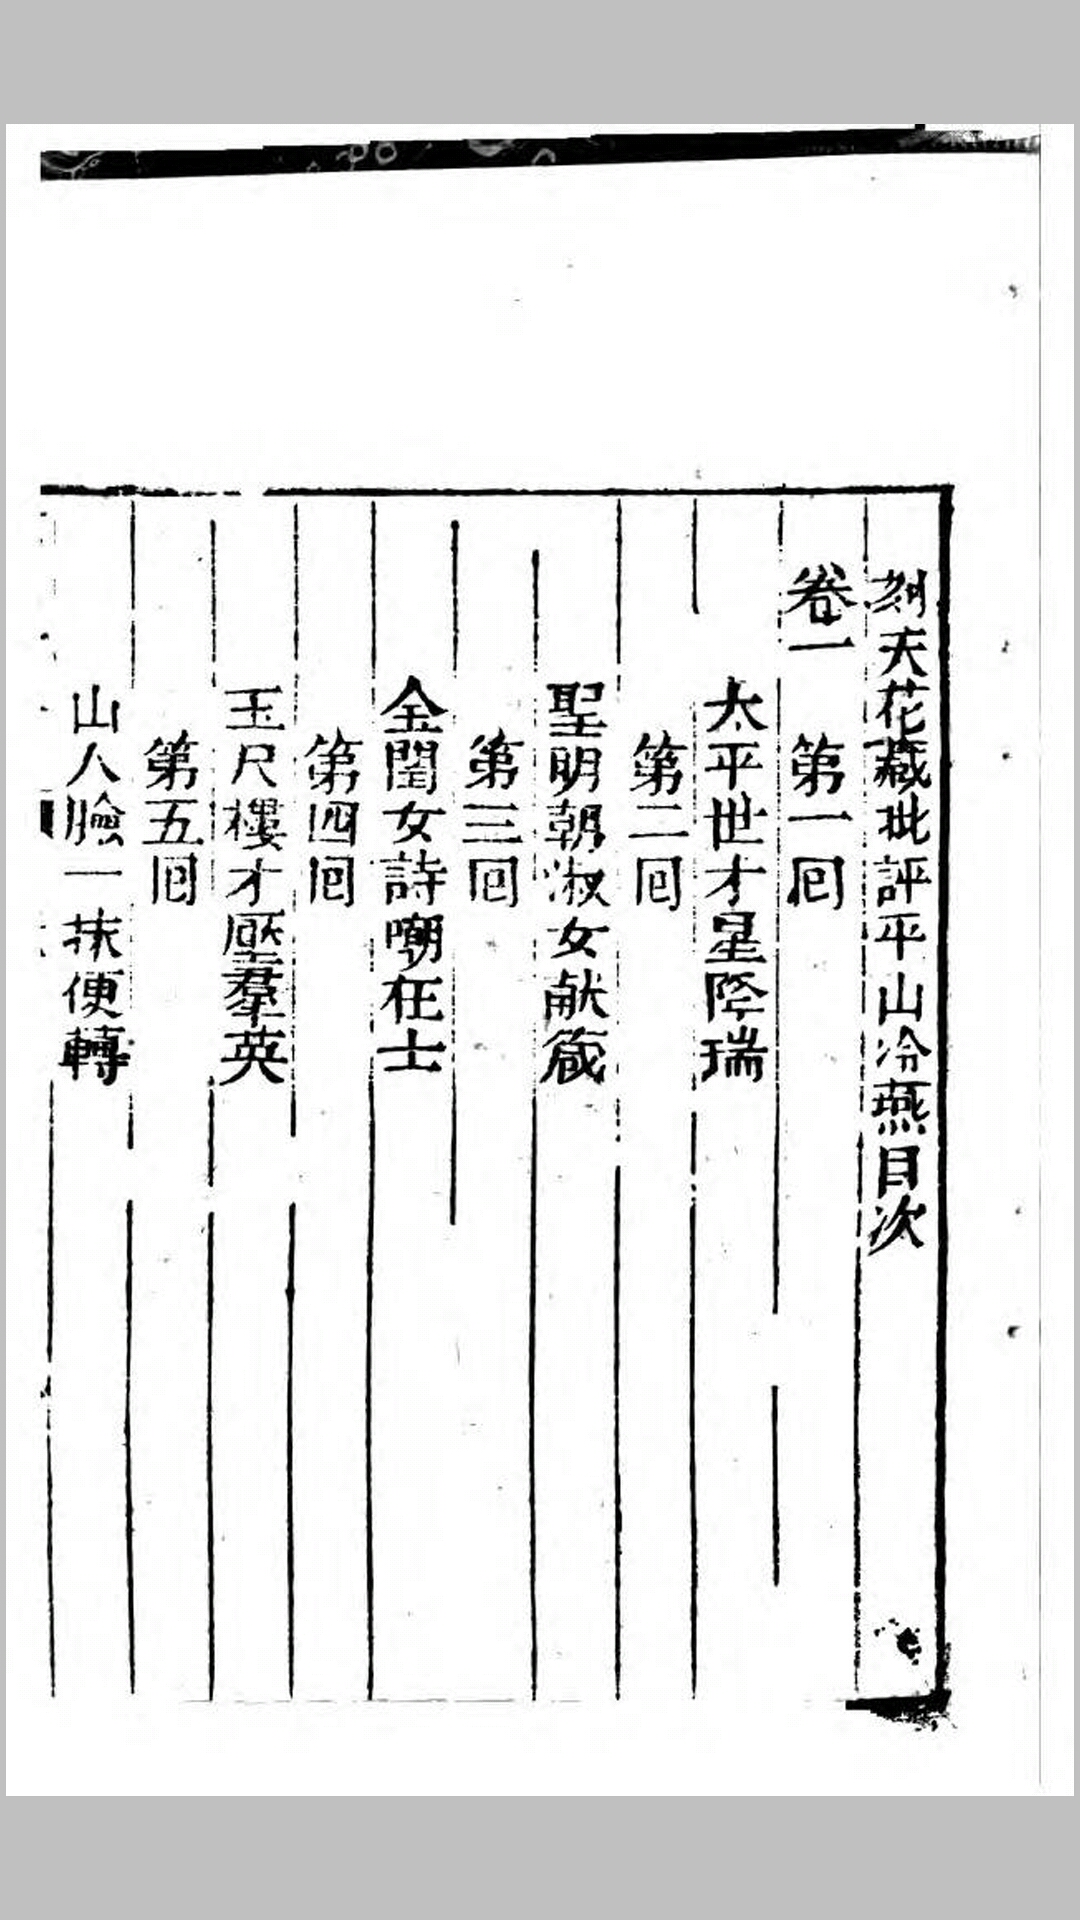 刻天花藏批評平山冷燕目次
卷一　第一囘
太平世才星降瑞
第二囘
聖明朝淑女献箴
第三囘
金閨女詩嘲狂士
第四囘
玉尺樓才壓羣英
第五囘
山人臉一抹便轉